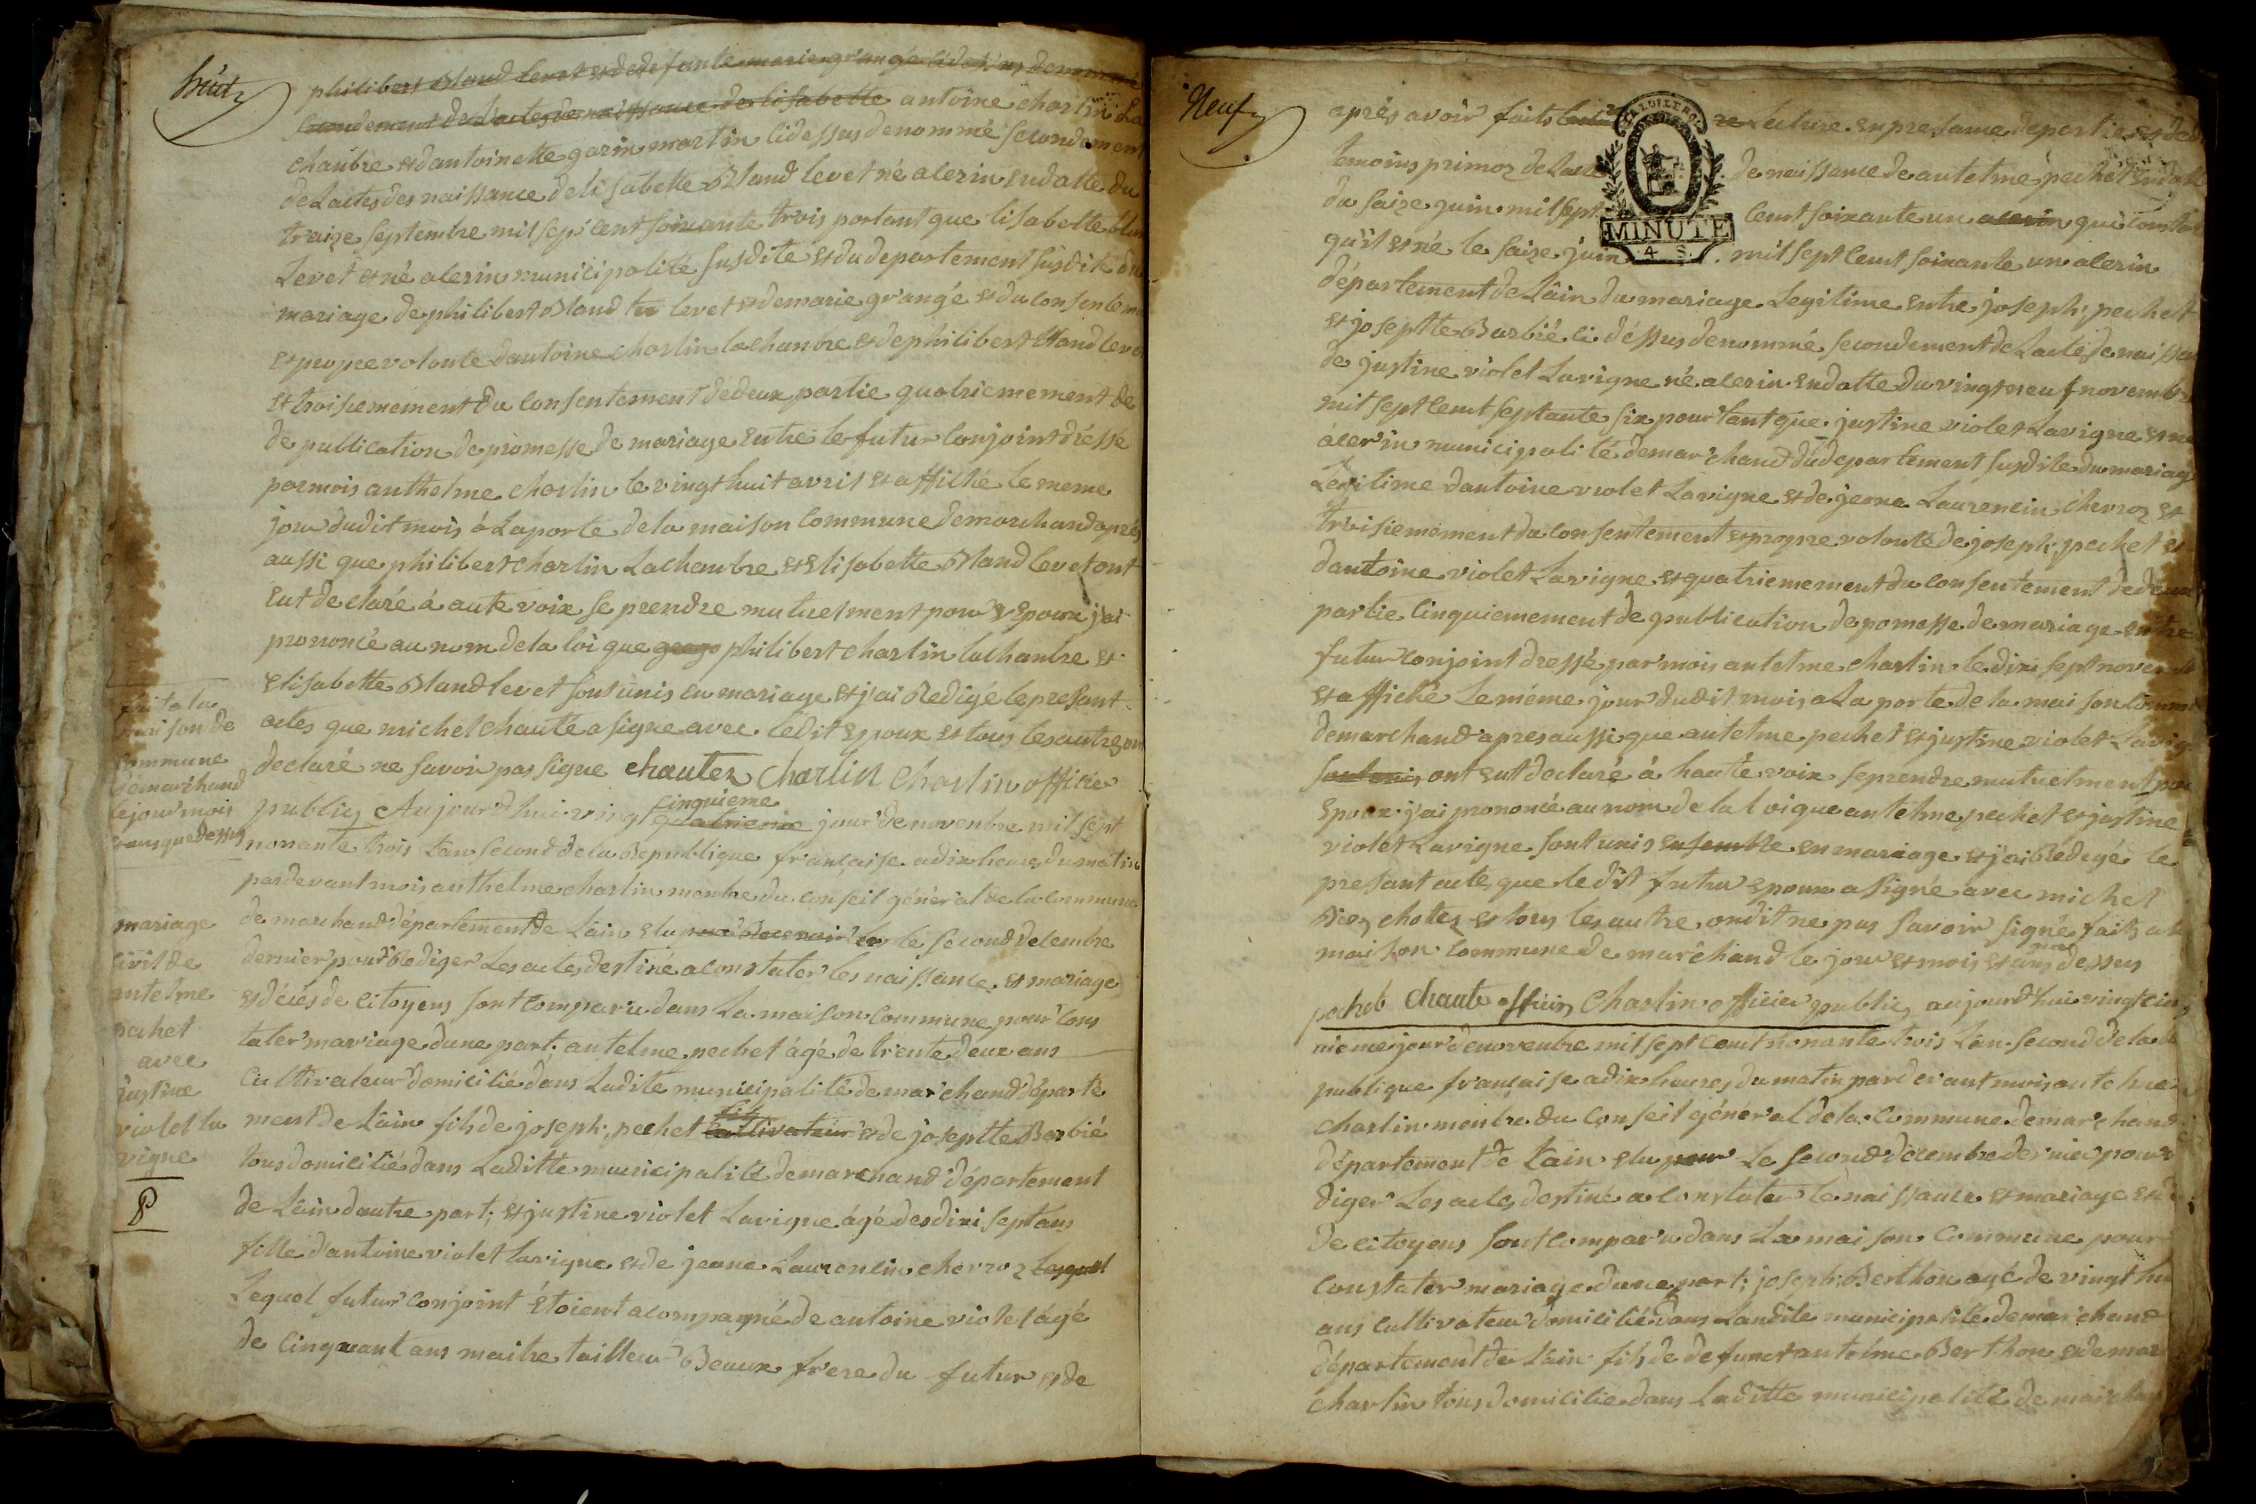 huit
philibert Bland levet et de defunte marie grangé cidessus denommé
secondement de Lactes de naissance de lisabette antoine charlin La
chanbre et dantoinette garin martin cidessus denommé secondement
de Lactes des naissance de lisabette Bland levet né a lerin en datte du
traize septembre mil sept cent soixante trois portant que lisabette blan
Levet et né a lerin municipalité susdite et du departement susdite du
mariage de philibert Bland levet et de marie grangé et du consenteme
et propre volonte dantoine charlin lachanbre et de philibert Bland leve
et troisiemement du consentement dedeux partie quatriemement de
de publication de promesse de mariage entre le futur conjoint dressé
par mois anthelme charlin le vingt huit avril et affiché le meme
jour dudit mois à Laporte de la maison Commune demarchand aprés
aussi que philibert charlin Lachambre et Elisabette Bland levet ont
eut declaré à aute voix se prendre mutuelment pour Epoux j'ai
prononcé au nom dela loi que philibert charlin lachanbre et
Elisabette Bland levet sont unis en mariage et j'ai Redigé le present
actes que michel chaute a signe avec ledit epoux et tous les autre on
declaré ne savoir pas signe chautez Charlin Charlin officie
fait a la
maison de
commune
demarchand
le jour mois
et ans que dessus
publiq Aujourd'hui vingt quatrieme cinquieme jour de novenbre mil sept
nonante trois Lan second dela Republique française a dix heures du matin
pardevant mois anthelme charlin menbre du conseil général de la commune
mariage
civil de
antelme
pechet
avec
justine
violet la
vigne
8
de marchand département de Lain elu le second decembre
dernier pour Rediger Les actes destiné a constater les naissance et mariage
et décés de citoyens sont comparu dans La maison commune pour cons
tater mariage dune part antelme pechet âgé de trente deux ans
Cultivateur domicilié dans Ladite municipalité de marchand départe
ment de Lain fils de joseph pechet cultivateur fils et de josephte Barbié
tous domicilié dans Laditte municipalité demarchand département
de Lain dautre part, et justine violet Lavigne âgé des dixi sept ans
fille d'antoine violet lavigne et de jeane Laurencin cherroz lequel
Lequel futur conjoint étoient acompagné de antoine violet âgé
de Cinquant ans maitre tailleur Beaux frere du futur et de
Neuf
aprés avoir faits lecture en presance departie et de
temoins primoz de Lacte de naissance de antelme pechet en date
du saize juin mil sept cent soixante un a lerin qui constate
qu'il et né le saize juin mil sept cent soixante un a lerin
MINUTE
4 S.
département de Lain du mariage Legitime entre joseph pechet
et josephte Barbié ci déssus denommé secondement de Lacte de naissan
de justine violet Lavigne né a lerin en datte du vingt neuf novembre
mil sept cent septante six pourtant que justine violet Lavigne et né
a lerin municipalité demarchand du departement susdite du mariage
Legitime dantoine violet Lavigne et de jeane Laurencin cherroz et
troisiemement du consentement et propre volonté de joseph pechet et
dantoine violet Lavigne et quatriemement du consentement dedeux
partie Cinquiemement de publication de pomesse de mariage entre
futur conjoint dressé par mois antelme charlin le dixi sept novembre
et affiché Le méme jour dudit mois a La porte de la maison comm
demarchand apres aussi que antelme pechet et justine violet Lavig
sont unis ont eut declaré à haute voix se prendre mutuelment pou
Epoux j'ai prononcé au nom de la loi que antelme pechet et justine
violet Lavigne sont unis ensemble en mariage et j'ai Rédegé le
presant acte que le dit futur epoux a signé avec michel
chottez et tous les autre ondit ne pas savoir signé faits a la
maison commune de marchand le jour et mois et ans que dessus
pechet Chaute officier Charlin officier publiq aujourd'hui vingt cin
nieme jour de novenbre mil sept cent nonante trois Lan second dela Re
publique française a dix heures du matin pardevant mois antelme
charlin menbre du conseil général de la commune demarchand
département de Lain elu pour Le second decembre dernier pour r
diger Les actes destiné a constater le naissance et mariage et d
de citoyens sont comparu dans La maison commune pour
constater mariage dune part joseph Berthon agé de vingt hu
ans cultivateur domicilié dans Landite municipalité demarchand
département de Lain fils de defunct antelme Berthon et de mar
charlin tous domicilie dans laditte municipalité de marchan